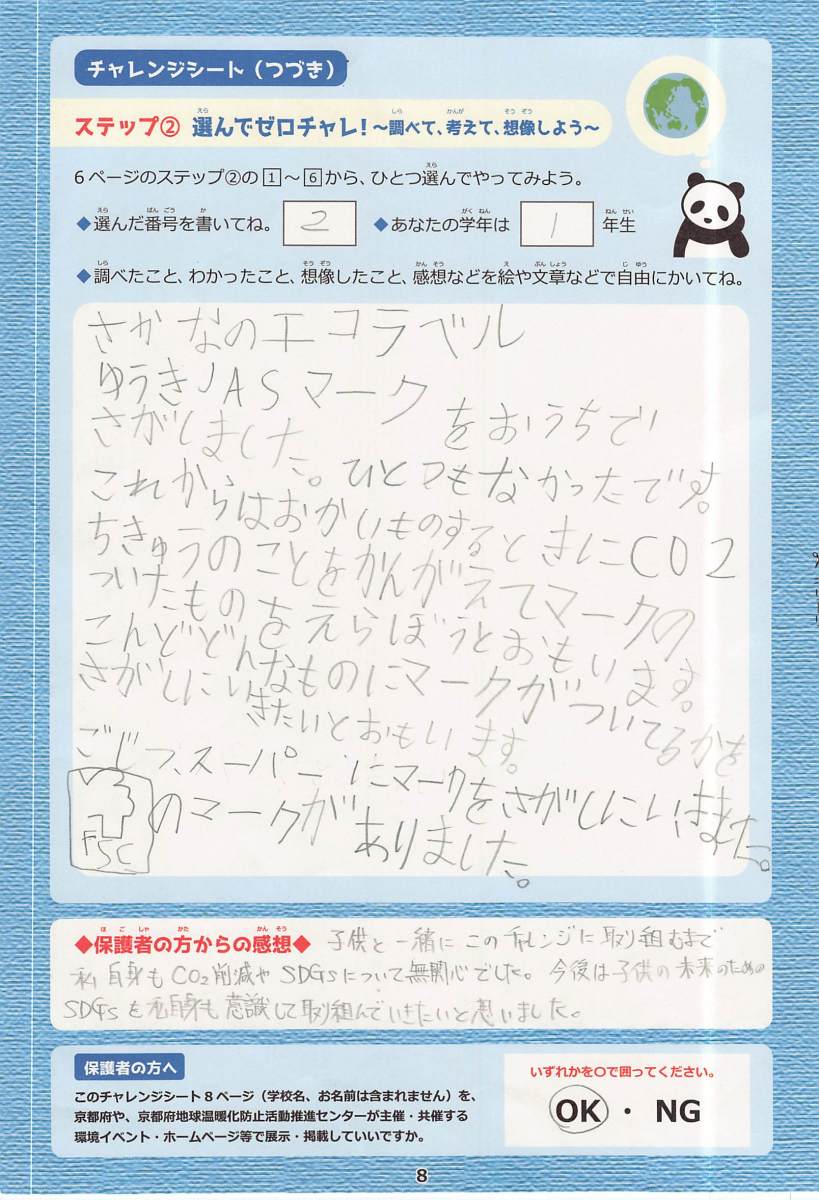 チャレンジシート（つづき）
ステップ② 選んでゼロチャレ！～調べて、考えて、想像しよう～
6ページのステップ②の1～6から、ひとつ選んでやってみよう。
◆選んだ番号を書いてね。 2 ◆あなたの学年は 1 年生
◆調べたこと、わかったこと、想像したこと、感想などを絵や文章などで自由にかいてね。
さかなのエコラベル
ゆうきJASマーク をおうちで
さがしました。ひとつもなかったです。
これからはおかいものするときにCO2
ちきゅうのことをかんがえてマークの
ついたものをえらぼうとおもいます。
こんどどんなものにマークがついてるかを
さがしにいきたいとおもいます。
ごじつ、スーパーにマークをさがしにいきました。
FSC のマークがありました。
◆保護者の方からの感想◆ 子供と一緒にこのチャレンジに取り組むまで
私自身もCO2削減やSDGsについて無関心でした。今後は子供の未来のための
SDGsを私自身も意識して取り組んでいきたいと思いました。
保護者の方へ
このチャレンジシート8ページ（学校名、お名前は含まれません）を、
京都府や、京都府地球温暖化防止活動推進センターが主催・共催する
環境イベント・ホームページ等で展示・掲載していいですか。
いずれかを○で囲ってください。
OK・NG
8